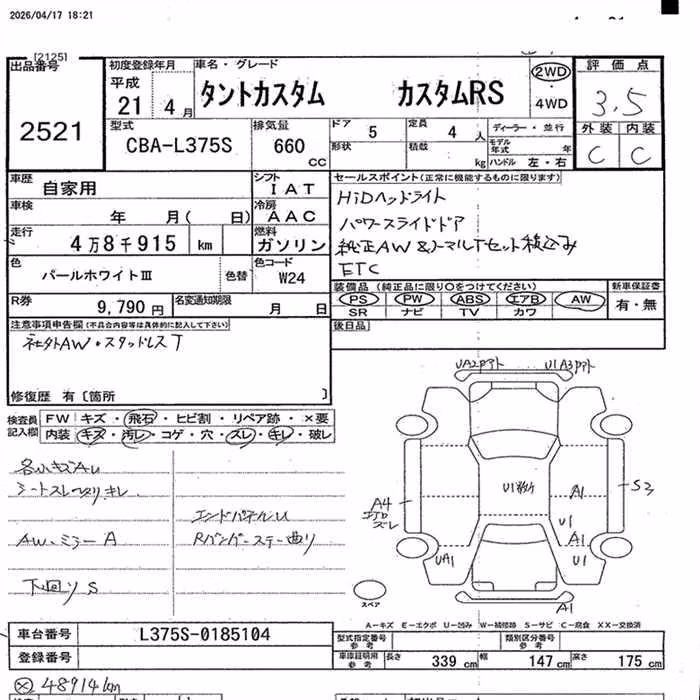 2026/04/17 18:21
[2125]
出品番号
2521
初度登録年月
平成
21 4月
車名・グレード
タントカスタム カスタムRS
2WD
4WD
評価点
3.5
外装 内装
C C
型式
CBA-L375S
排気量
660
CC
ドア 5
定員 4 人
形状
積載 kg
ディーラー・並行
モデル年式 年
ハンドル 左・右
車歴 自家用
シフト IAT
車検 年 月( 日)
冷房 AAC
走行 4万8千915 km
燃料 ガソリン
色 パールホワイトⅢ
色替
色コード W24
R券 9,790円
名変通知期限 月 日
セールスポイント(正常に機能するものに限ります)
HiDヘッドライト
パワースライドドア
純正AW&ノーマルTセット積込み
ETC
装備品 (純正品に限り〇をつけてください)
PS PW ABS エアB AW
SR ナビ TV カワ
新車保証書
有・無
注意事項申告欄(不具合内容等は具体的に記入して下さい)
社外AW・スタッドレスT
修復歴 有〔箇所 〕
後日品
検査員記入欄
FW キズ・飛石・ヒビ割・リペア跡・×要
内装 キズ・汚レ・コゲ・穴・スレ・キレ・破レ
各小キズAU
シートスレ キレ
AW、ミラーA
下回りS
エンドパネルU
Rバンパーステー曲り
UA2Pアト U1A3Pアト
U1
A4
エアロ
ズレ
A1
S2
U1
A1
UA1
U1
A1
スペア
A-キズ E-エクボ U-凹み W-補修跡 S-サビ C-腐食 XX-交換済
車台番号 L375S-0185104
登録番号
型式指定番号 参考
類別区分番号 参考
車庫証明用 参考
長さ 339 cm 幅 147 cm 高さ 175 cm
48914km